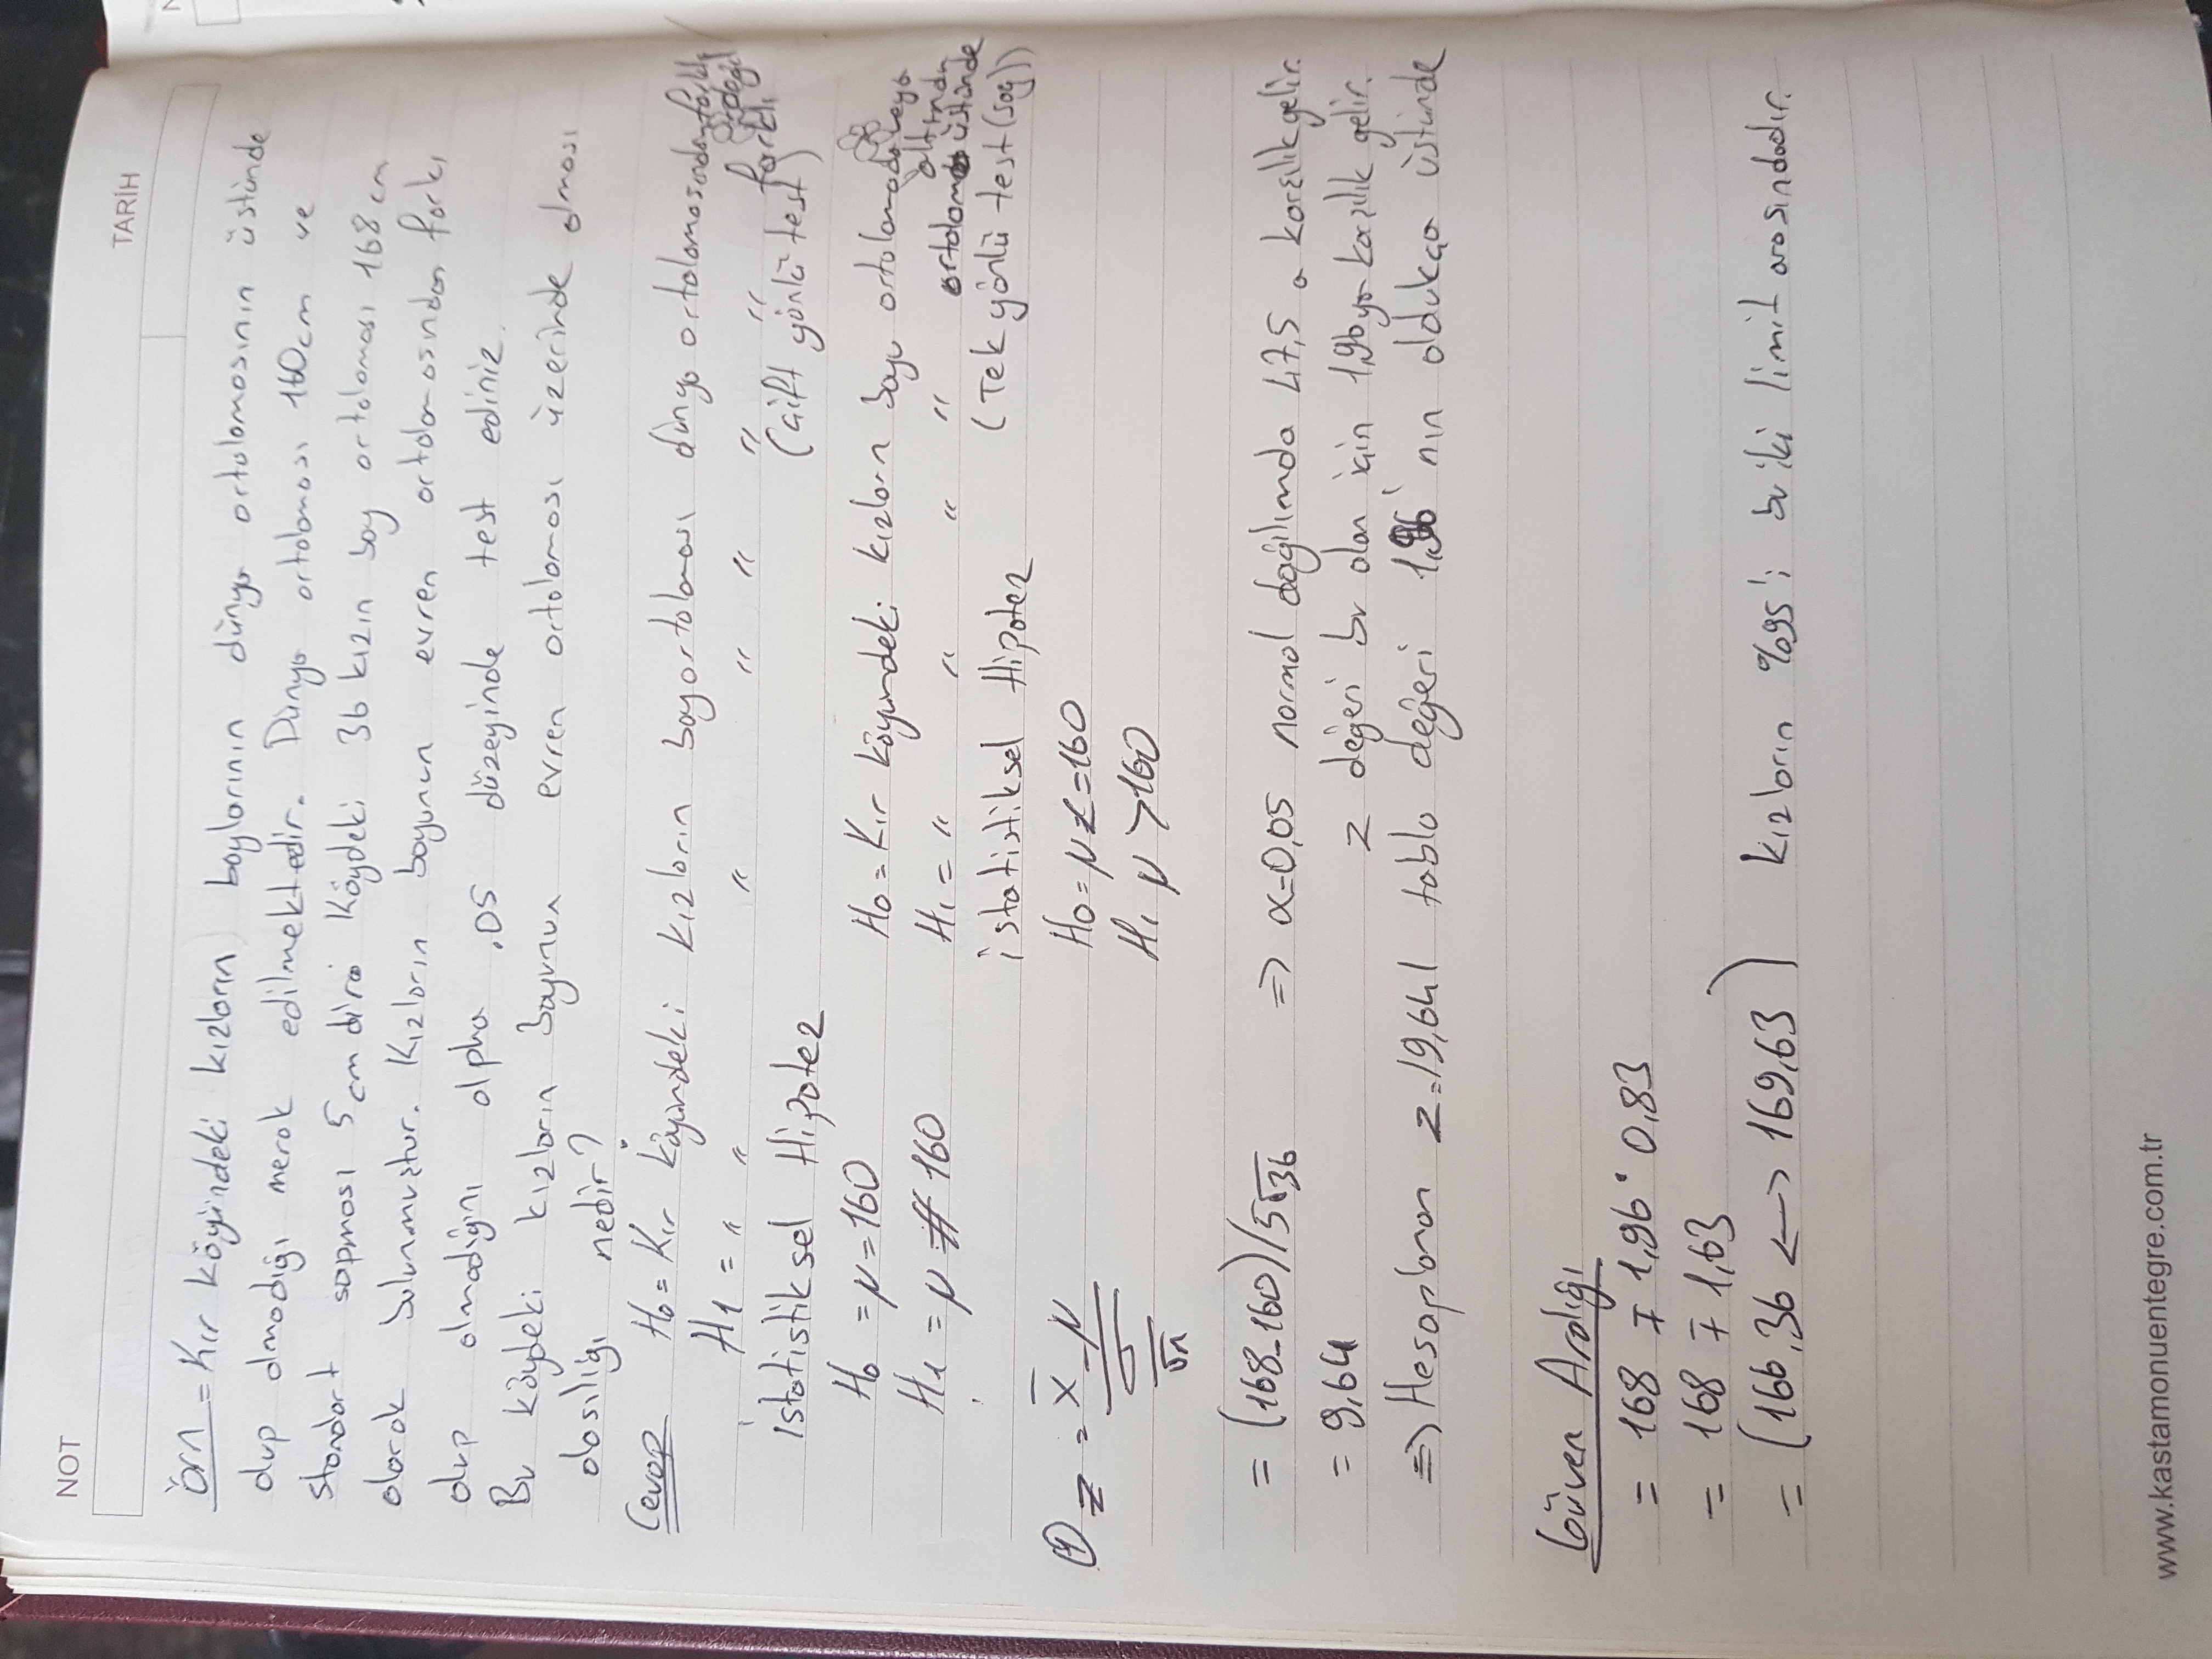 NOT
TARİH
Örn = Kır köyündeki kızların boylarının dünya ortalamasının üstünde
olup olmadığı merak edilmektedir. Dünya ortalaması 160cm ve
standart sapması 5cm dir. Köydeki 36 kızın boy ortalaması 168 cm
olarak bulunmuştur. Kızların boyunun evren ortalamasından farkı
olup olmadığını alpha .05 düzeyinde test ediniz.
Bu köydeki kızların boyunun evren ortalaması üzerinde olması
olasılığı nedir?
Cevap H₀ = Kır köyündeki kızların boy ortalaması dünya ortalamasından farklı
değil
H1 = " " " " " " " farklı
(Çift yönlü test)
İstatistiksel Hipotez
H₀ = μ = 160
H1 = μ ≠ 160
H₀ = Kır köyündeki kızların boyu ortalamada veya
altında
H₁ = " " " " ortalama üstünde
(Tek yönlü test (sağ))
İstatistiksel Hipotez
① z = x̄ - μ / σ / √n
H₀ = μ ≤ = 160
H₁ μ > 160
= (168-160)/5√36 => α=0,05 normal dağılımda 47,5 a karşılık gelir.
= 9,64 z değeri bu alan için 1,96 ya karşılık gelir.
=> Hesaplanan z = |9,64| tablo değeri 1,96' nın oldukça üstünde
Güven Aralığı
= 168 ∓ 1,96 · 0,83
= 168 ∓ 1,63
= (166,36 <-> 169,63) kızların %95'i bu iki limit arasındadır.
www.kastamonuentegre.com.tr